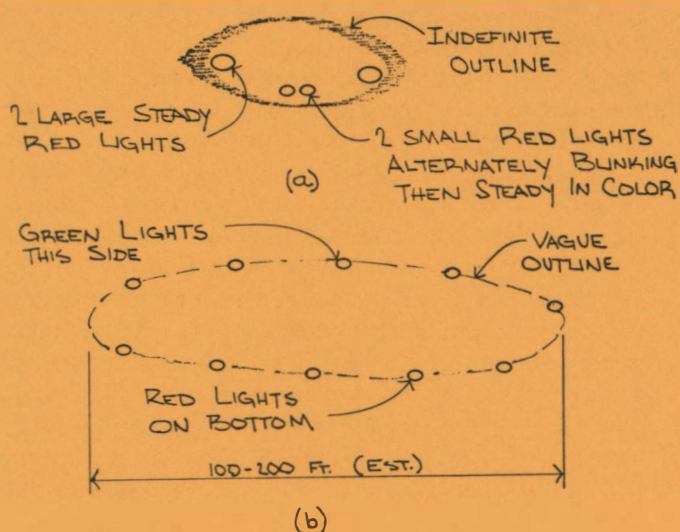 INDEFINITE
OUTLINE
2 LARGE STEADY
RED LIGHTS
2 SMALL RED LIGHTS
ALTERNATELY BLINKING
THEN STEADY IN COLOR
(a)
GREEN LIGHTS
THIS SIDE
VAGUE
OUTLINE
RED LIGHTS
ON BOTTOM
100-200 FT. (EST.)
(b)